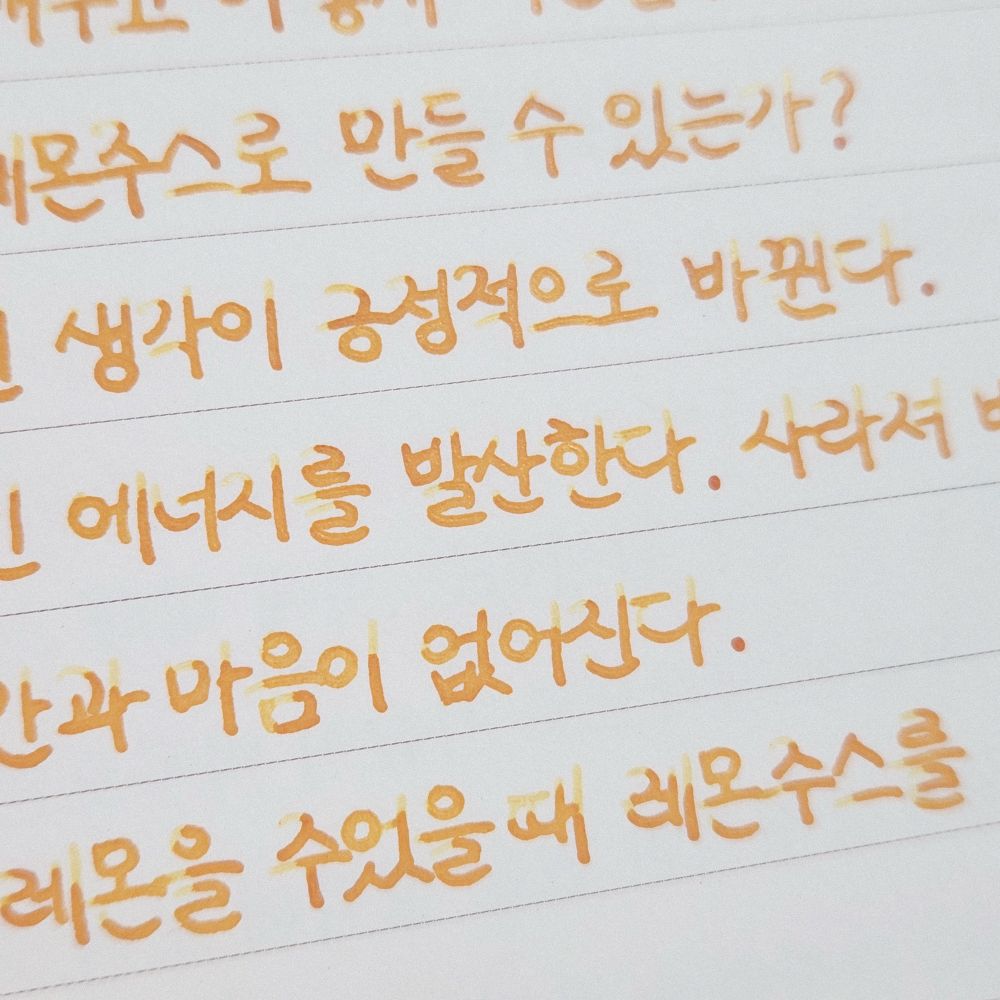 레몬주스로 만들 수 있는가?
생각이 긍정적으로 바뀐다.
에너지를 발산한다. 사라져
과 마음이 없어진다.
레몬을 주었을 때 레몬주스를